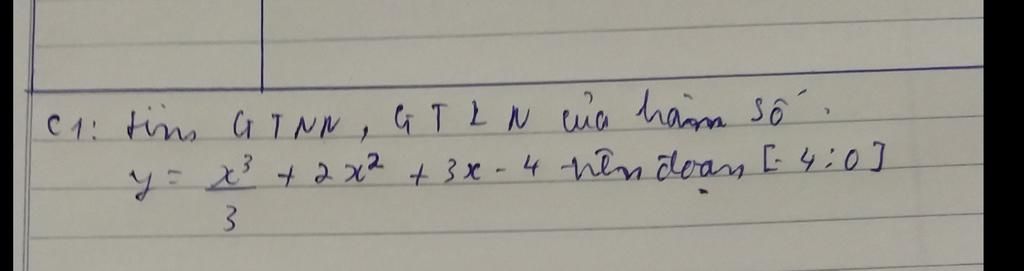 C1: tìm GTNN, GTLN của hàm số.
y = x³/3 + 2x² + 3x - 4 trên đoạn [-4:0]